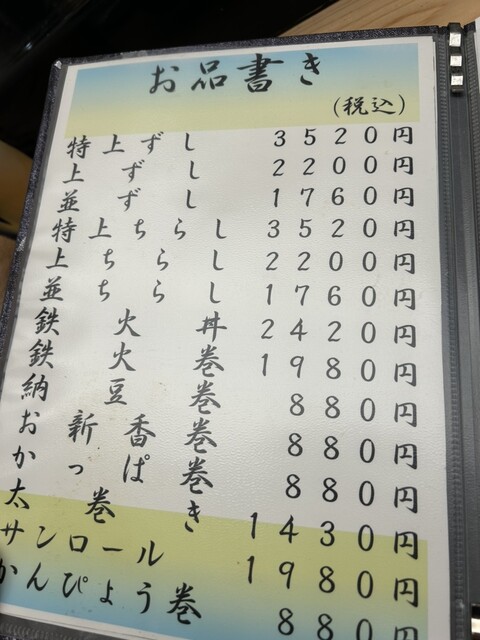 お品書き
(税込)
特上ずし 3520円
上ずし 2200円
並ずし 1760円
特上ちらし 3520円
上ちらし 2200円
並ちらし 1760円
鉄火丼 2420円
鉄火巻 1980円
納豆巻 880円
お新香巻 880円
かっぱ巻 880円
太巻き 1430円
サンロール 1980円
かんぴょう巻 880円